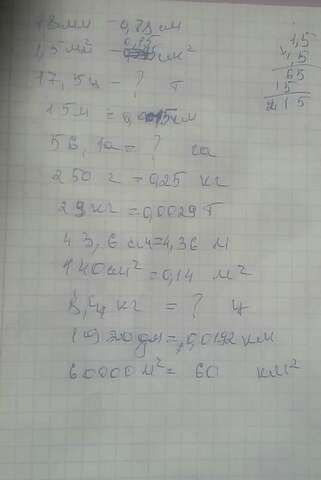 18 мм - 0,18 см
1,5 м² - см²
17,5 ц - ? т
15 м = 0,015 км
56, 1а = ? га
250 г = 0,25 кг
29 кг = 0,0029 т
43,6 см = 4,36 м
140 см² = 0,14 м²
8,4 кг = ? ц
дм = 0,0192 км
60000 м² = 60 км²
1,5
1,5
65
15
2,15